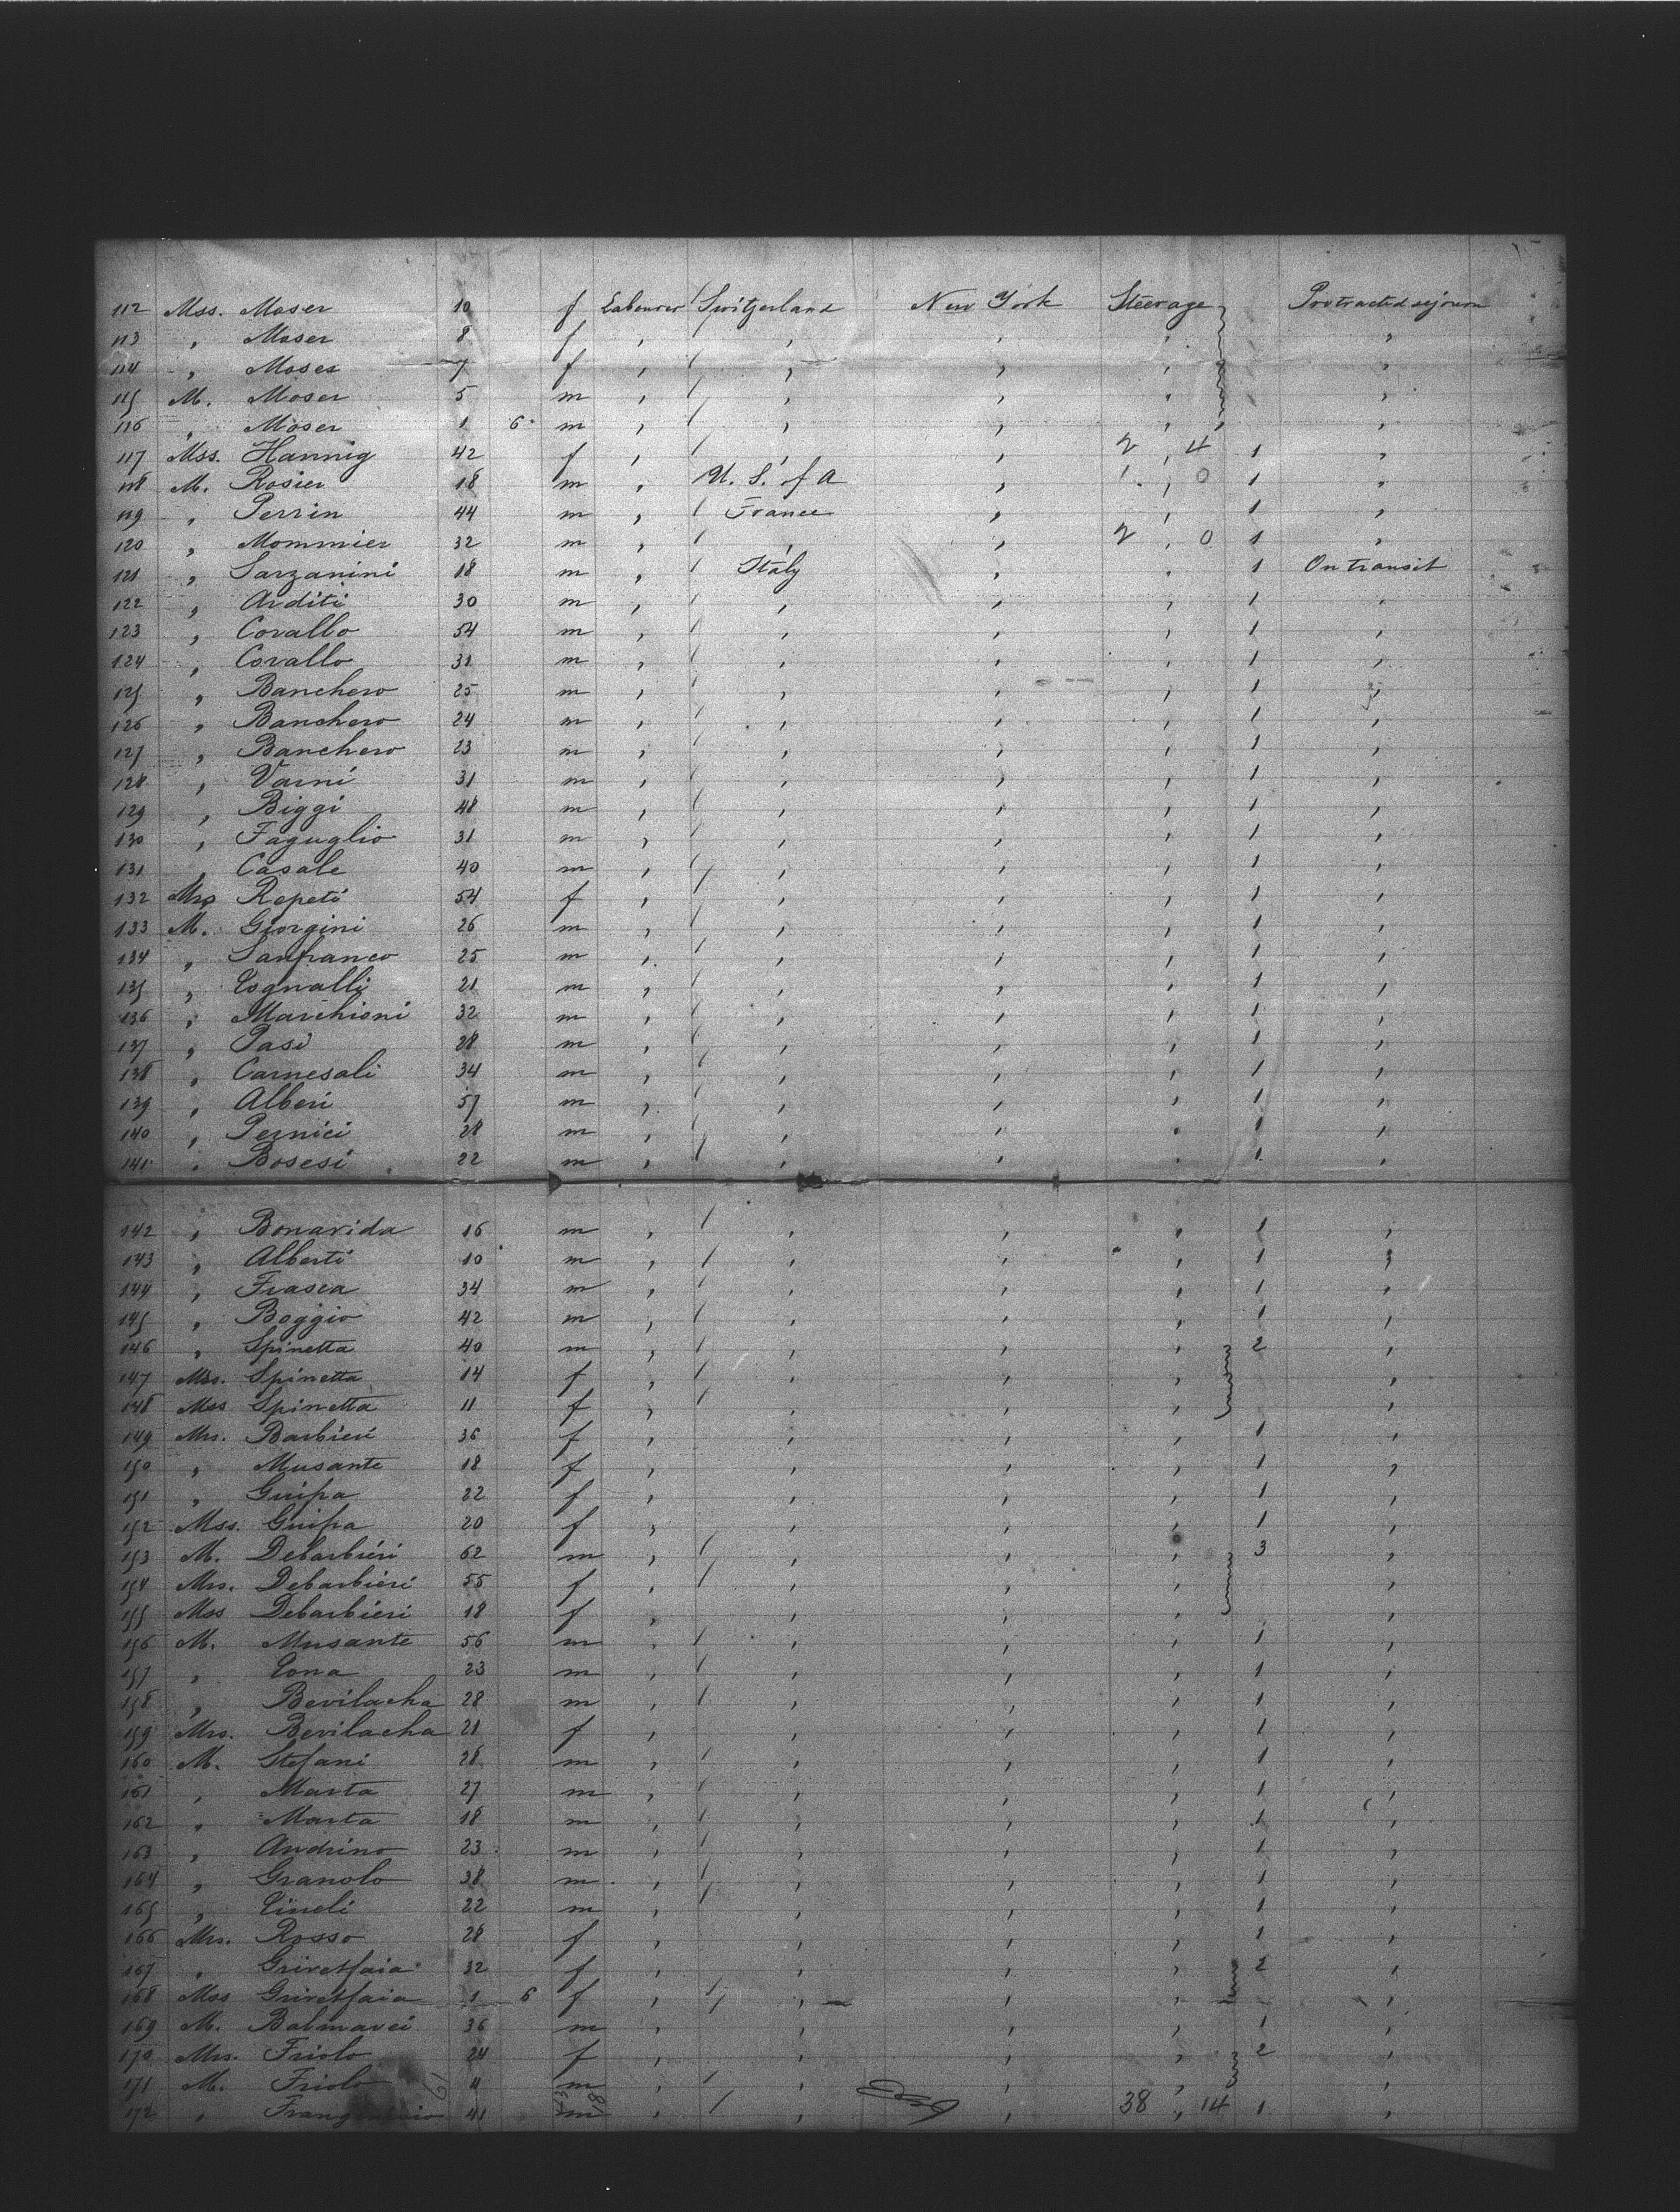 112 Mss. Moser 10 f Labourer Switzerland New York Steerage Protracted sejourn
113 " Moser 8 f " " " " "
114 " Moser 7 f " " " " "
115 M. Moser 5 m " " " " "
116 " Moser 1 6 m " " " " "
117 Mss. Hannig 42 f " " " 2 " 4 1 "
118 M. Rosier 18 m " U. S. of A " 1 " 0 1 "
119 " Perrin 44 m " France " " 1 "
120 " Mommier 32 m " " " 2 " 0 1 "
121 " Sarzanini 18 m " Italy " " 1 On transit
122 " Arditi 30 m " " " " 1 "
123 " Corallo 54 m " " " " 1 "
124 " Corallo 31 m " " " " 1 "
125 " Banchero 25 m " " " " 1 "
126 " Banchero 24 m " " " " 1 "
127 " Banchero 23 m " " " " 1 "
128 " Varni 31 m " " " " 1 "
129 " Biggi 48 m " " " " 1 "
130 " Faguglio 31 m " " " " 1 "
131 " Casale 40 m " " " " 1 "
132 Mrs Repeti 54 f " " " " 1 "
133 M. Giorgini 26 m " " " " 1 "
134 " Sanfranco 25 m " " " " 1 "
135 " Tognalli 21 m " " " " 1 "
136 " Marchioni 32 m " " " " 1 "
137 " Pasi 28 m " " " " 1 "
138 " Carnesali 34 m " " " " 1 "
139 " Alberi 57 m " " " " 1 "
140 " Pernici 28 m " " " " 1 "
141 " Bosesi 22 m " " " " 1 "
142 " Bonarida 16 m " " " " 1 "
143 " Alberti 10 m " " " " 1 "
144 " Frasca 34 m " " " " 1 "
145 " Boggio 42 m " " " " 1 "
146 " Spinetta 40 m " " " " 2 "
147 Mss. Spinetta 14 f " " " " "
148 Mss Spinetta 11 f " " " " "
149 Mrs. Barbieri 36 f " " " " 1 "
150 " Musante 18 f " " " " 1 "
151 " Guipa 22 f " " " " 1 "
152 Mss. Guipa 20 f " " " " 1 "
153 M. Debarbieri 62 m " " " " 3 "
154 Mrs. Debarbieri 55 f " " " " "
155 Mss Debarbieri 18 f " " " " "
156 M. Musante 56 m " " " " 1 "
157 " Tona 23 m " " " " 1 "
158 " Bevilacha 28 m " " " " 1 "
159 Mrs. Bevilacha 21 f " " " " 1 "
160 M. Stefani 28 m " " " " 1 "
161 " Marta 27 m " " " " 1 "
162 " Marta 18 m " " " " 1 "
163 " Andrino 23 m " " " " 1 "
164 " Granolo 38 m " " " " 1 "
165 " Tineli 22 m " " " " 1 "
166 Mrs. Rosso 28 f " " " " 1 "
167 " 32 f " " " " 2 "
168 Mss 1 6 f " " " " "
169 M. 36 m " " " " 1 "
170 Mrs. Friolo 24 f " " " " 2 "
171 M. Friolo 4 m " " " " "
172 " 41 m " " " 38 " 14 1 "